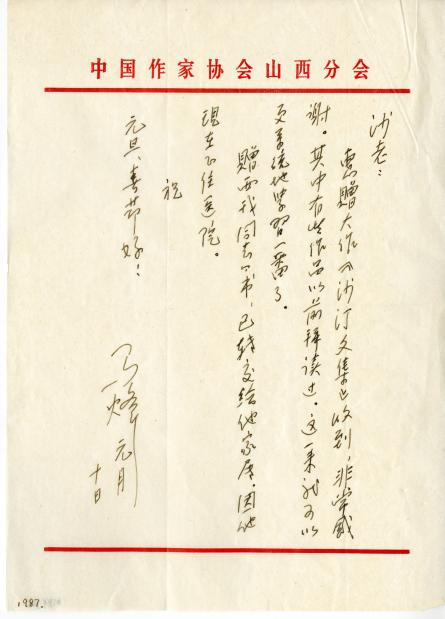 中国作家协会山西分会
沙老：
惠赠大作《沙汀文集》收到，非常感
谢。其中有些作品以前拜读过。这一来就可以
更系统地学习一番了。
赠西戎同志的书，已转交给他家属，因他
现在正住医院。
祝
元旦、春节好！
马烽
元月
十日
1987.